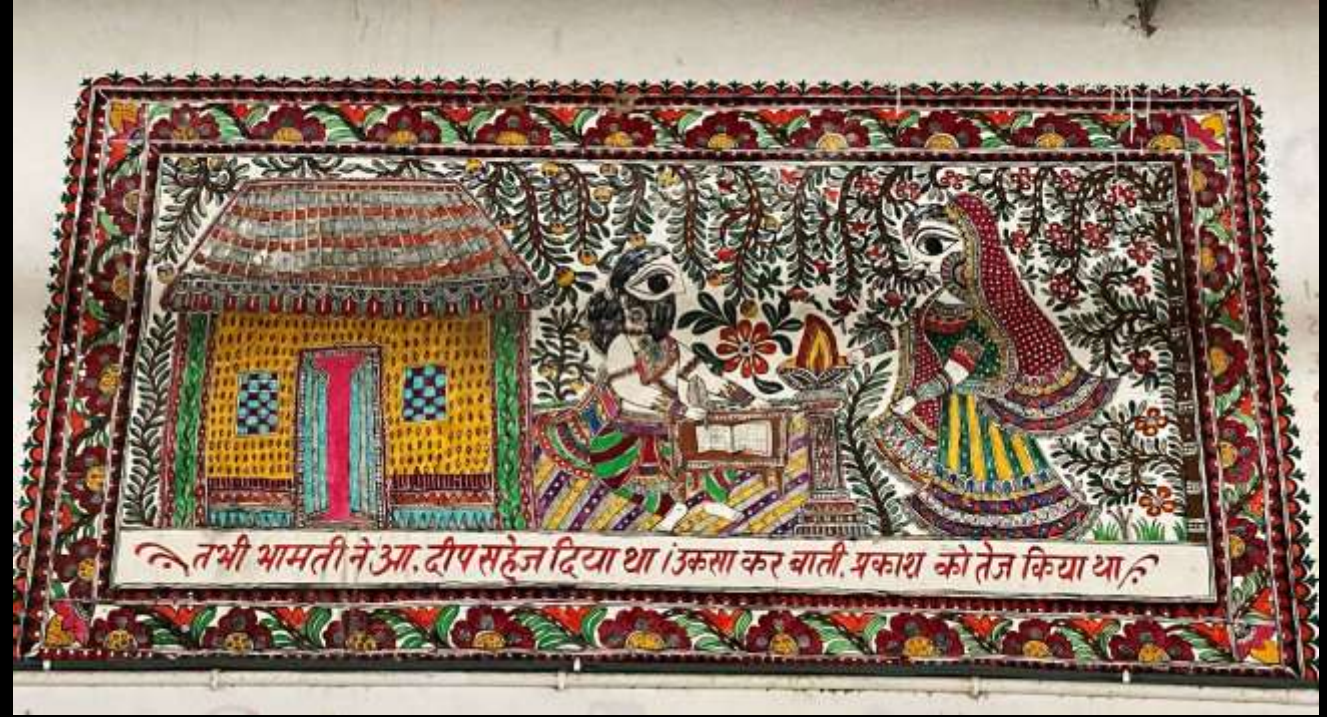 तभी भामती ने आ, दीप सहेज दिया था । उकसा कर बाती, प्रकाश को तेज किया था